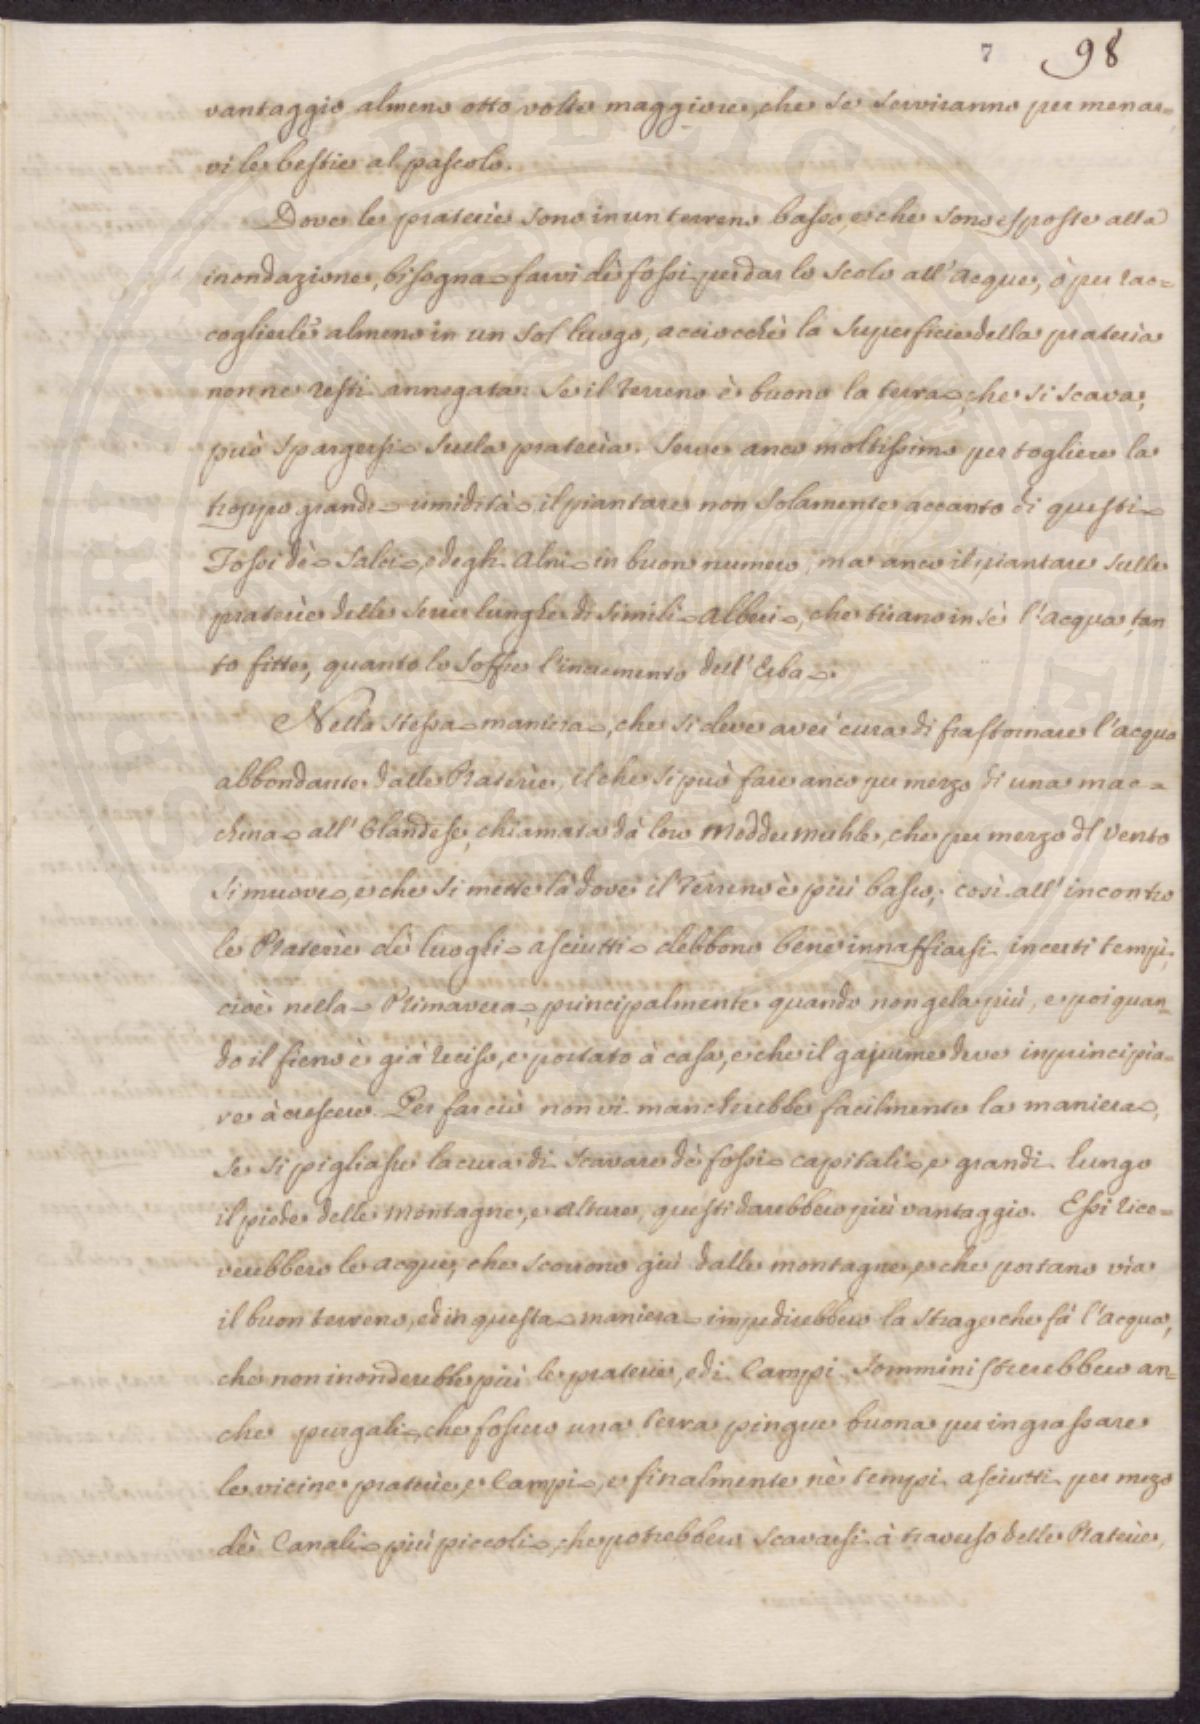 7 98
vantaggio almeno otto volte maggiore, che se serviranno per menar=
vi le bestie al pascolo.
Dove le praterie sono in un terreno basso, e che sono esposte alla
inondazione, bisogna farvi dè fossi per dar lo scolo all'acque, ò per rac=
coglierle almeno in un sol luogo, acciocchè la superficie della prateria
non ne resti annegata. Se il terreno è buono la terra, che si scava,
può spargersi sulla prateria. Serve anco moltissimo per togliere la
troppo grande umidità, il piantare non solamente accanto di questi
Fossi dè Salci, e degli Alni in buon numero, ma anco il piantare sulle
praterie delle serie lunghe di simili Alberi, che tirano in sè l'acqua, tan
to fitte, quanto lo soffre l'incremento dell'Erba.
Nella stessa maniera, che si deve aver cura di frastornare l'acqua
abbondante dalle Praterie, il che si può fare anco per mezzo di una mac=
china all'Olandese, chiamata dà loro Moddermuhle, che per mezzo dl vento
si muove, e che si mette là dove il Terreno è più basso; così all'incontro
le Praterie dè luoghi asciutti debbono bene innaffiarsi in certi tempi,
cioè nella Primavera, principalmente quando non gela più, e poi quan=
do il fieno è già reciso, e portato à casa, e che il gajume deve inprincipia=
re à crescere. Per far ciò non vi mancherebbe facilmente la maniera,
se si pigliasse la cura di scavare dè fossi capitali, e grandi lungo
il piede delle Montagne, e alture, questi darebbero più vantaggio. Essi rice=
verebbero le acque, che scorrono giù dalle montagne, e che portano via
il buon terreno, ed in questa maniera impedirebbero la strage che fà l'acqua,
che non inonderebbe più le praterie, ed i Campi. Somministrerebbero an=
che purgali, che fossero una terra pingue buona per ingrassare
le vicine praterie, e Campi, e finalmente nè tempi asciutti per mezo
dè Canali più piccoli, che potrebbero scavarsi à traverso delle Praterie,